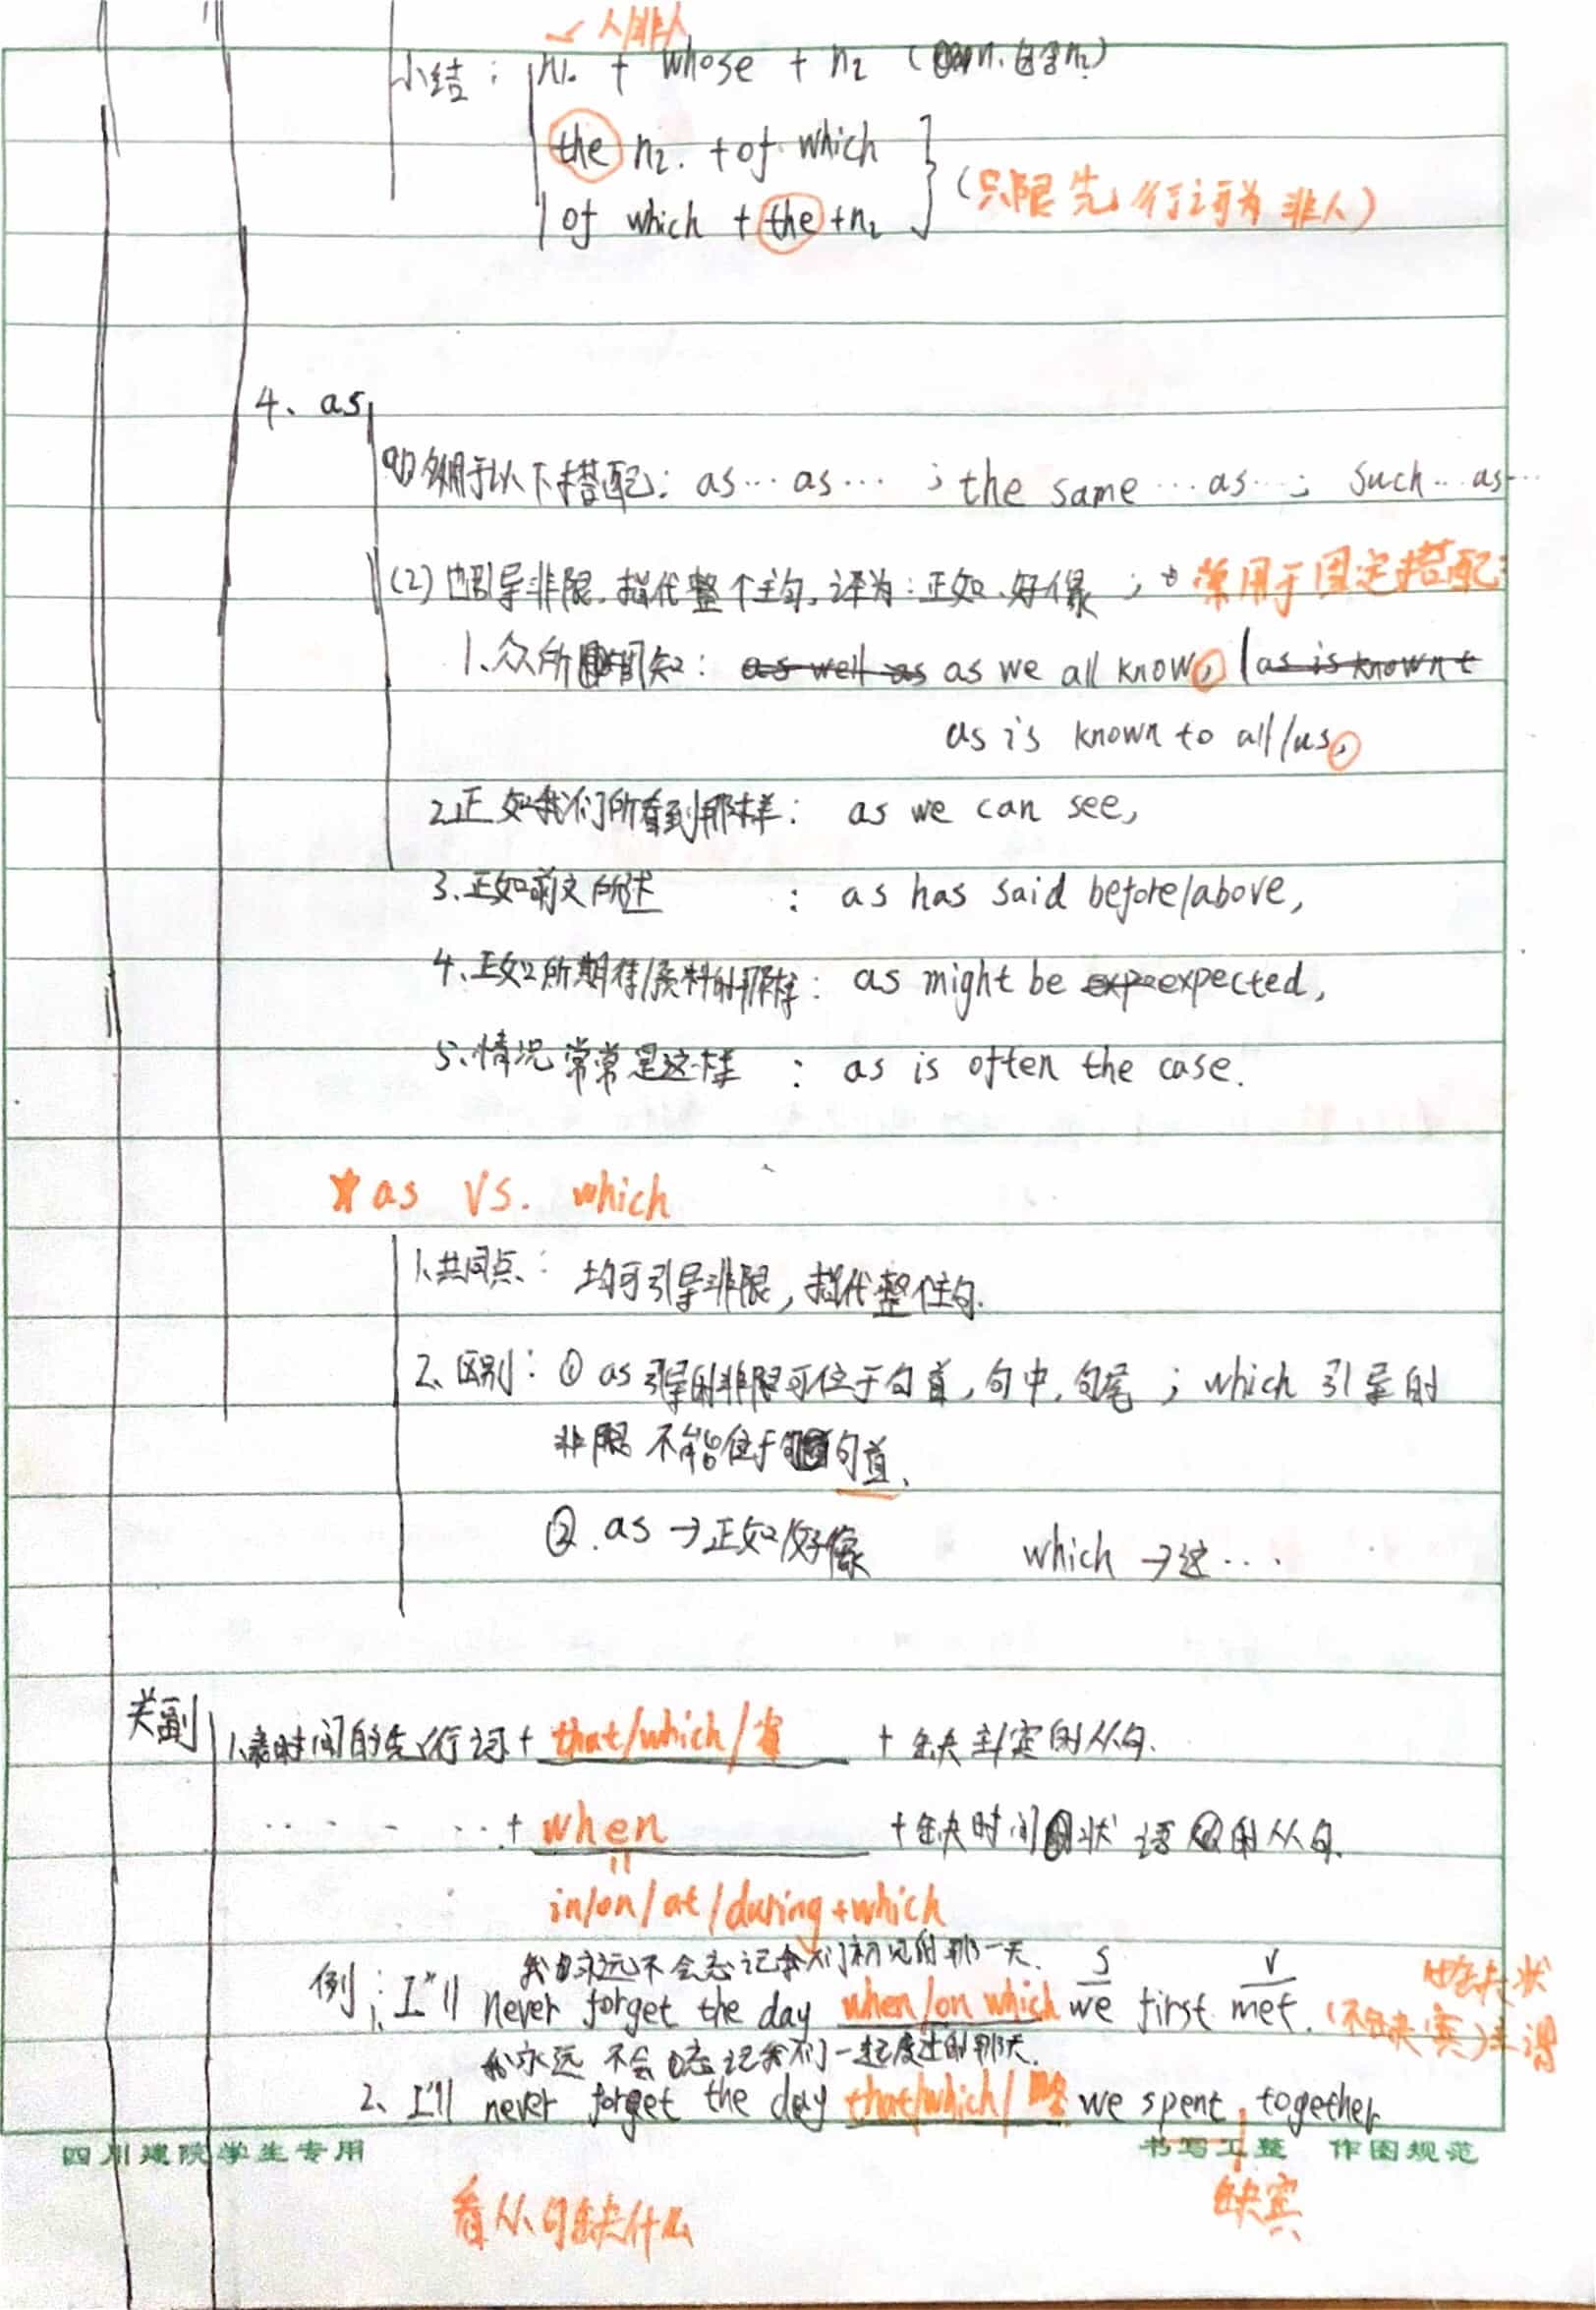 人/非人
小结: n1. + whose + n2 (n1包含n2)
the n2. + of which
of which + the + n2
(只限先行词为非人)
4、as
(1)多用于以下搭配: as…as… ; the same …as… ; such…as…
(2) 引导非限,指代整个主句,译为:正如、好像; 常用于固定搭配:
1、众所周知: as well as as we all know, as is known t
as is known to all/us,
2.正如我们所看到那样: as we can see,
3.正如前文所述 : as has said before/above,
4、正如所期待/预料的那样: as might be expe expected,
5、情况常常是这样 : as is often the case.
★as VS. which
1、共同点: 均可引导非限,指代整个主句.
2、区别: ① as引导的非限可位于句首,句中,句尾; which 引导的
非限不能位于句首.
②. as →正如/好像 which →这…
关副
1、表时间的先行词 + that/which/省 + 缺主/宾的从句.
…… + when + 缺时间状语的从句.
in/on/at/during+which
我永远不会忘记我们初见的那一天. S V 缺状
例: 1、I'll never forget the day when/on which we first met. (不缺宾)主谓
我永远不会忘记我们一起度过的那天.
2、I'll never forget the day that/which/省 we spent together
四川建院学生专用 书写工整 作图规范
看从句缺什么 缺宾